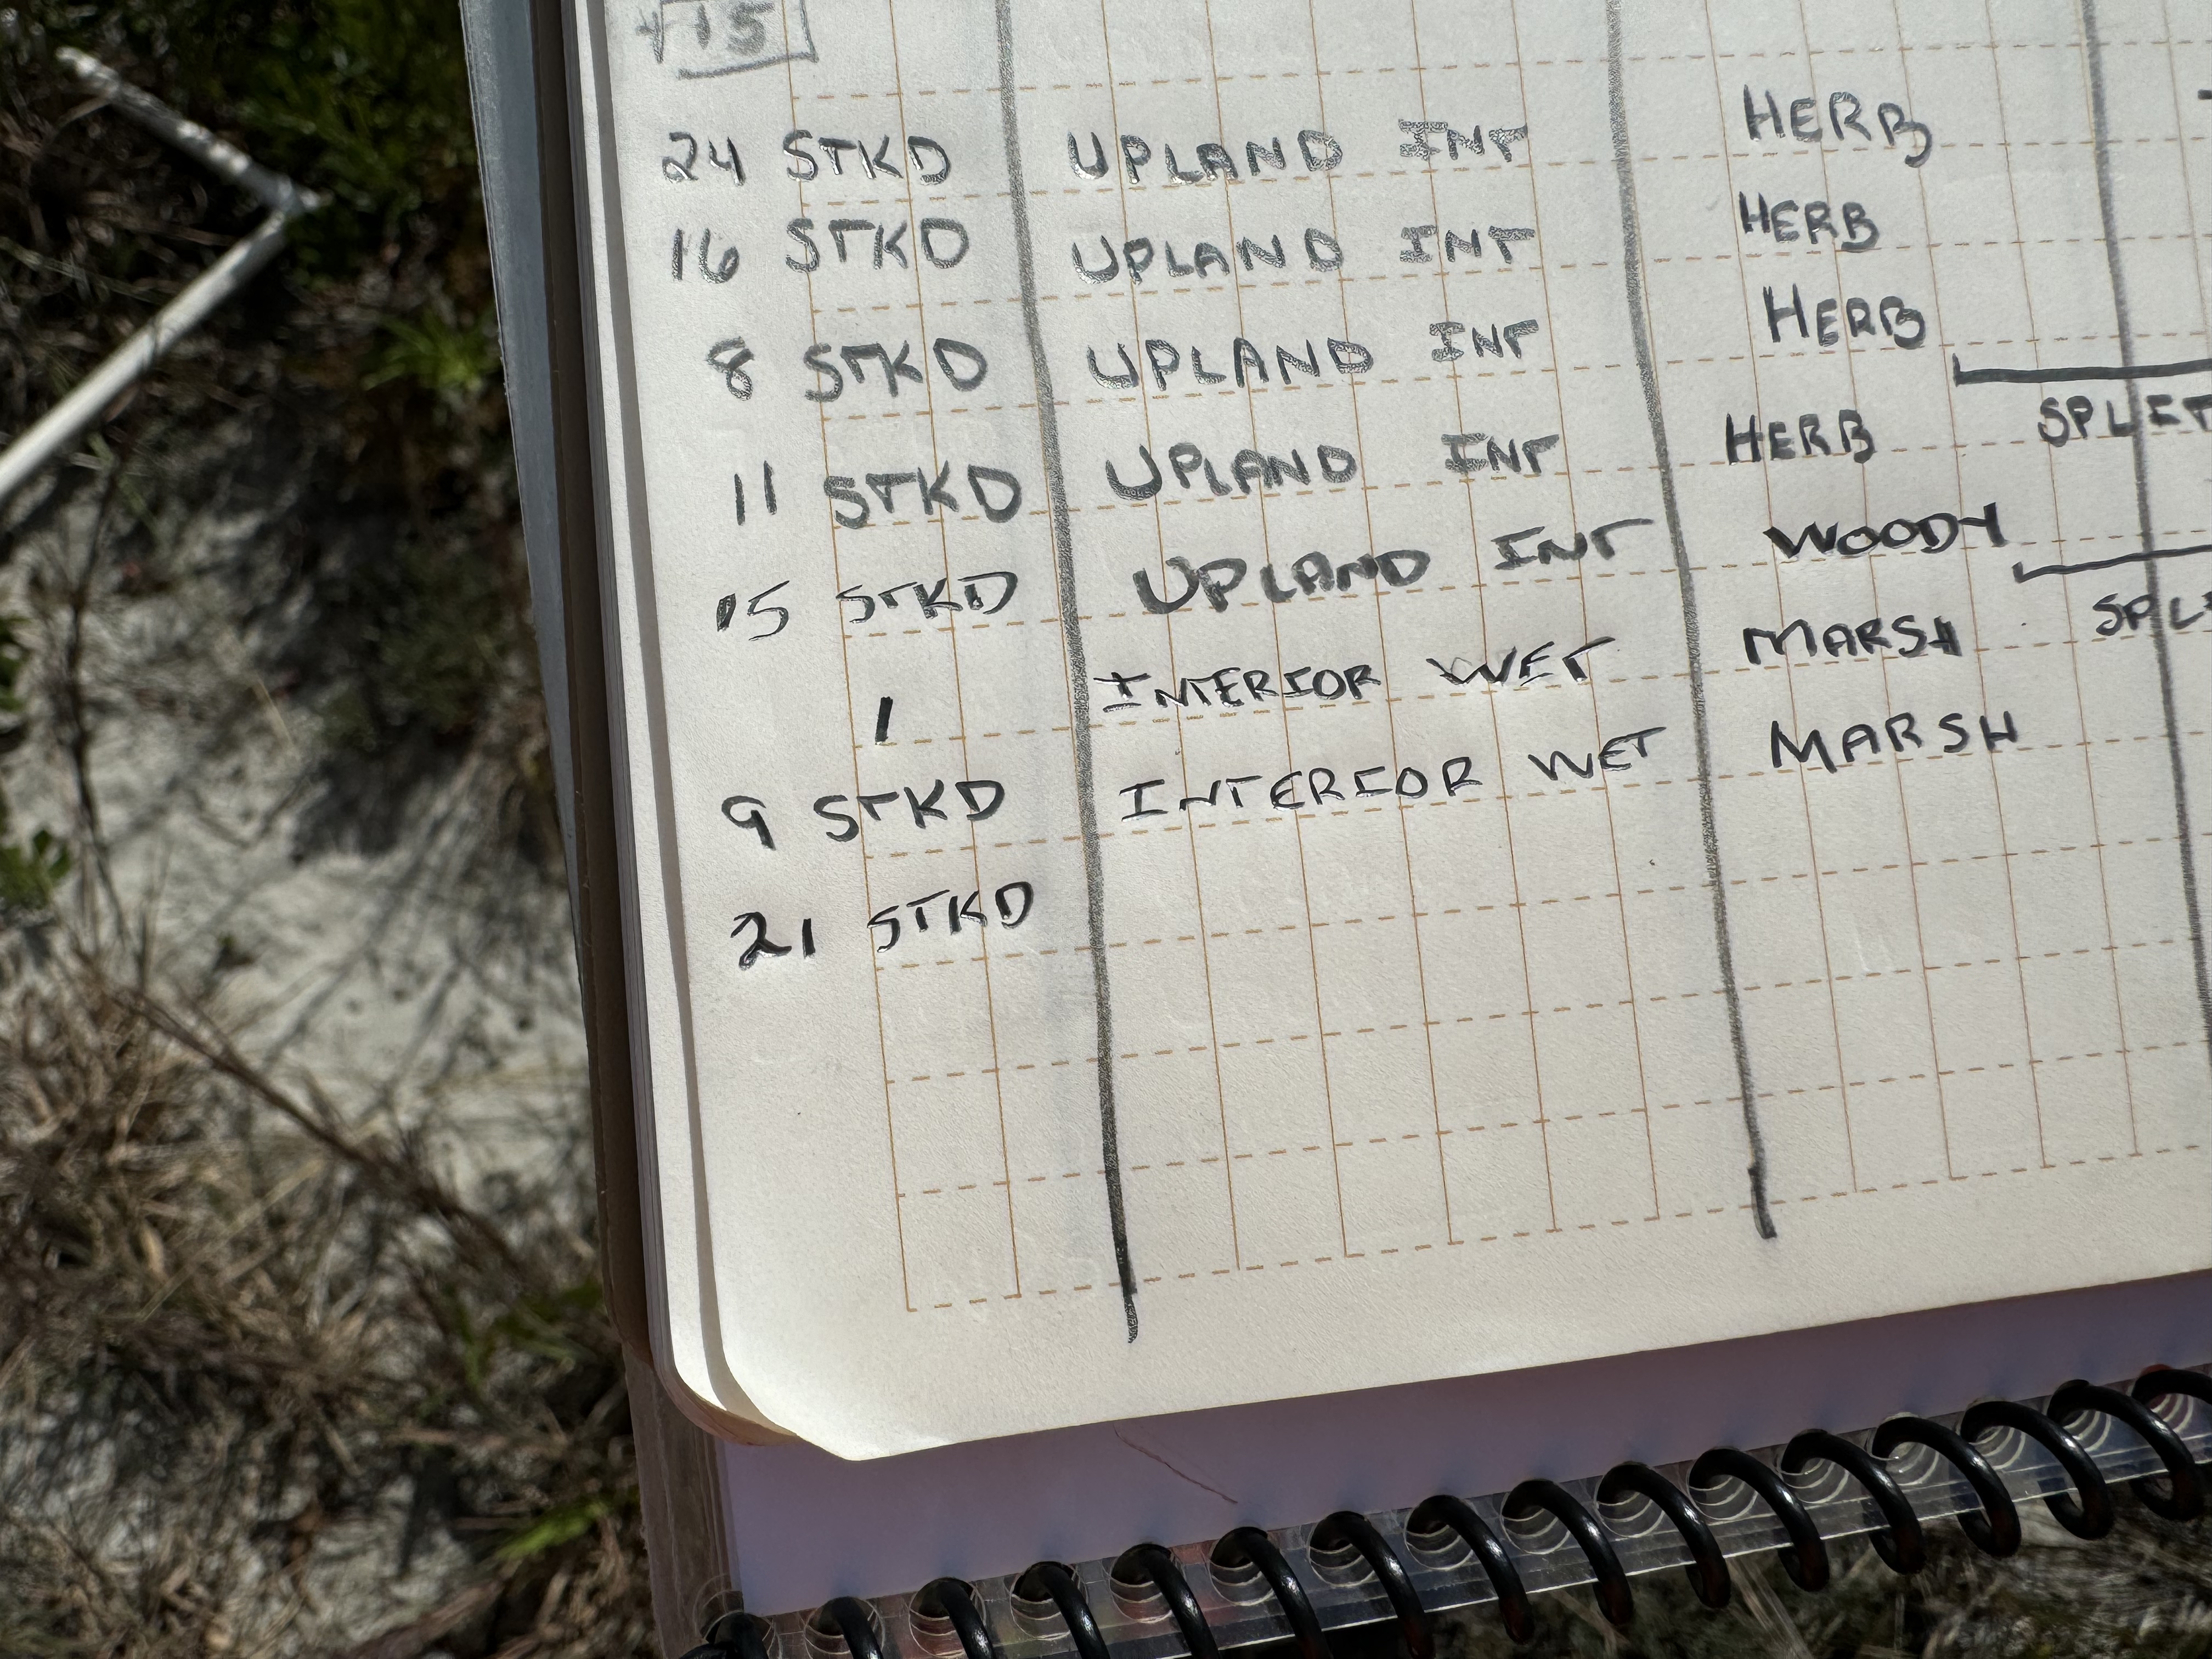 15
24 STKD UPLAND INT HERB
16 STKD UPLAND INT HERB
8 STKD UPLAND INT HERB
11 STKD UPLAND INT HERB SPLIT
15 STKD UPLAND INT WOODY
1 INTERIOR WET MARSH SPL
9 STKD INTERIOR WET MARSH
21 STKD